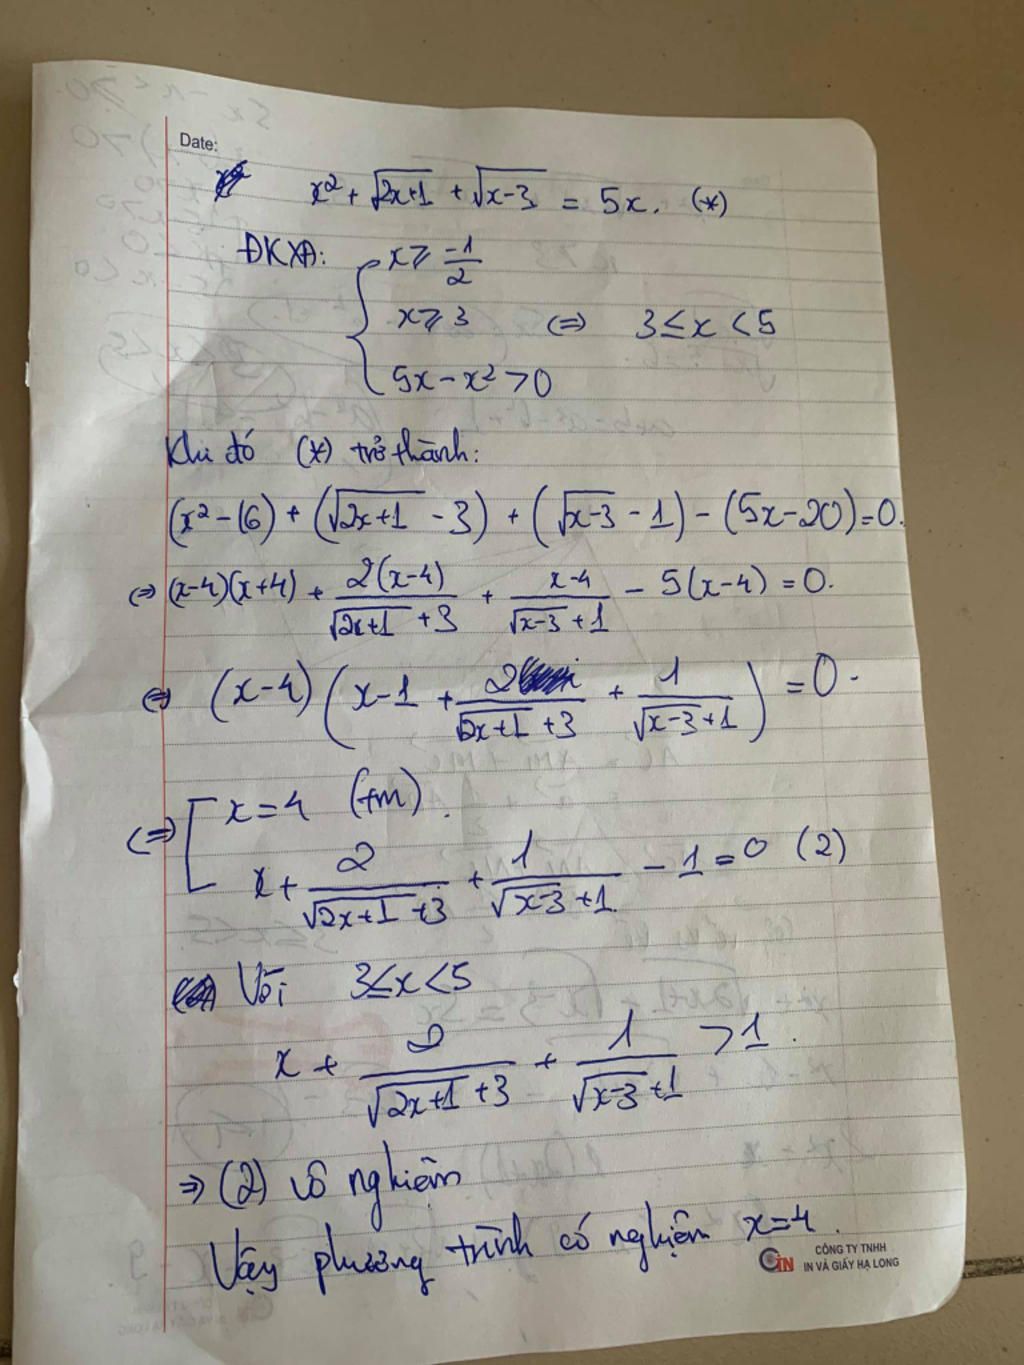 Date:
x² + √(2x+1) + √(x-3) = 5x. (*)
ĐKXĐ: { x ≥ -1/2
x ≥ 3 ⇔ 3 ≤ x < 5
5x - x² > 0
Khi đó (*) trở thành:
(x² - 16) + (√(2x+1) - 3) + (√(x-3) - 1) - (5x - 20) = 0.
⇔ (x-4)(x+4) + 2(x-4)/(√(2x+1) + 3) + (x-4)/(√(x-3) + 1) - 5(x-4) = 0.
⇔ (x-4)(x - 1 + 2/(√(2x+1) + 3) + 1/(√(x-3) + 1)) = 0.
⇔ [ x = 4 (tm).
x + 2/(√(2x+1) + 3) + 1/(√(x-3) + 1) - 1 = 0 (2)
Với 3 ≤ x < 5
x + 2/(√(2x+1) + 3) + 1/(√(x-3) + 1) > 1.
⇒ (2) vô nghiệm
Vậy phương trình có nghiệm x=4.
CÔNG TY TNHH
IN VÀ GIẤY HẠ LONG